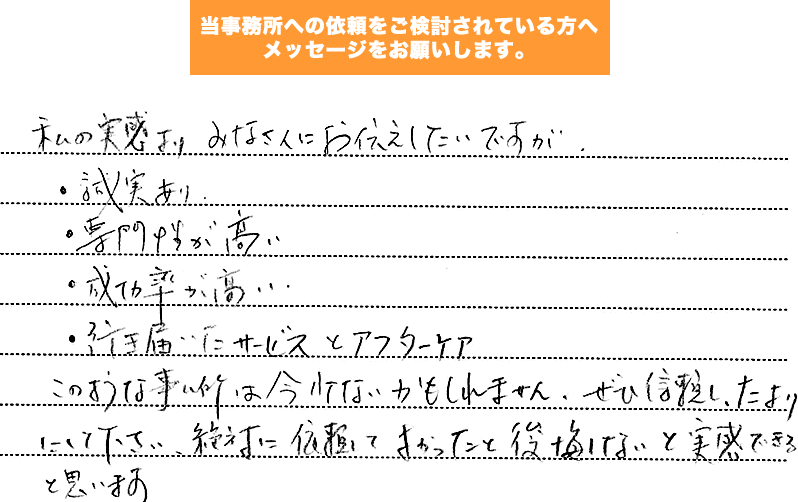 当事務所への依頼をご検討されている方へ
メッセージをお願いします。
私の実感より みなさんにお伝えしたいですが、
・誠実あり.
・専門性が高い
・成功率が高い.
・行き届いたサービスとアフターケア
このような事ム所は今少ないかもしれません。ぜひ信頼し、たより
にして下さい、絶対に依頼してよかったと後悔しないと実感できる
と思います